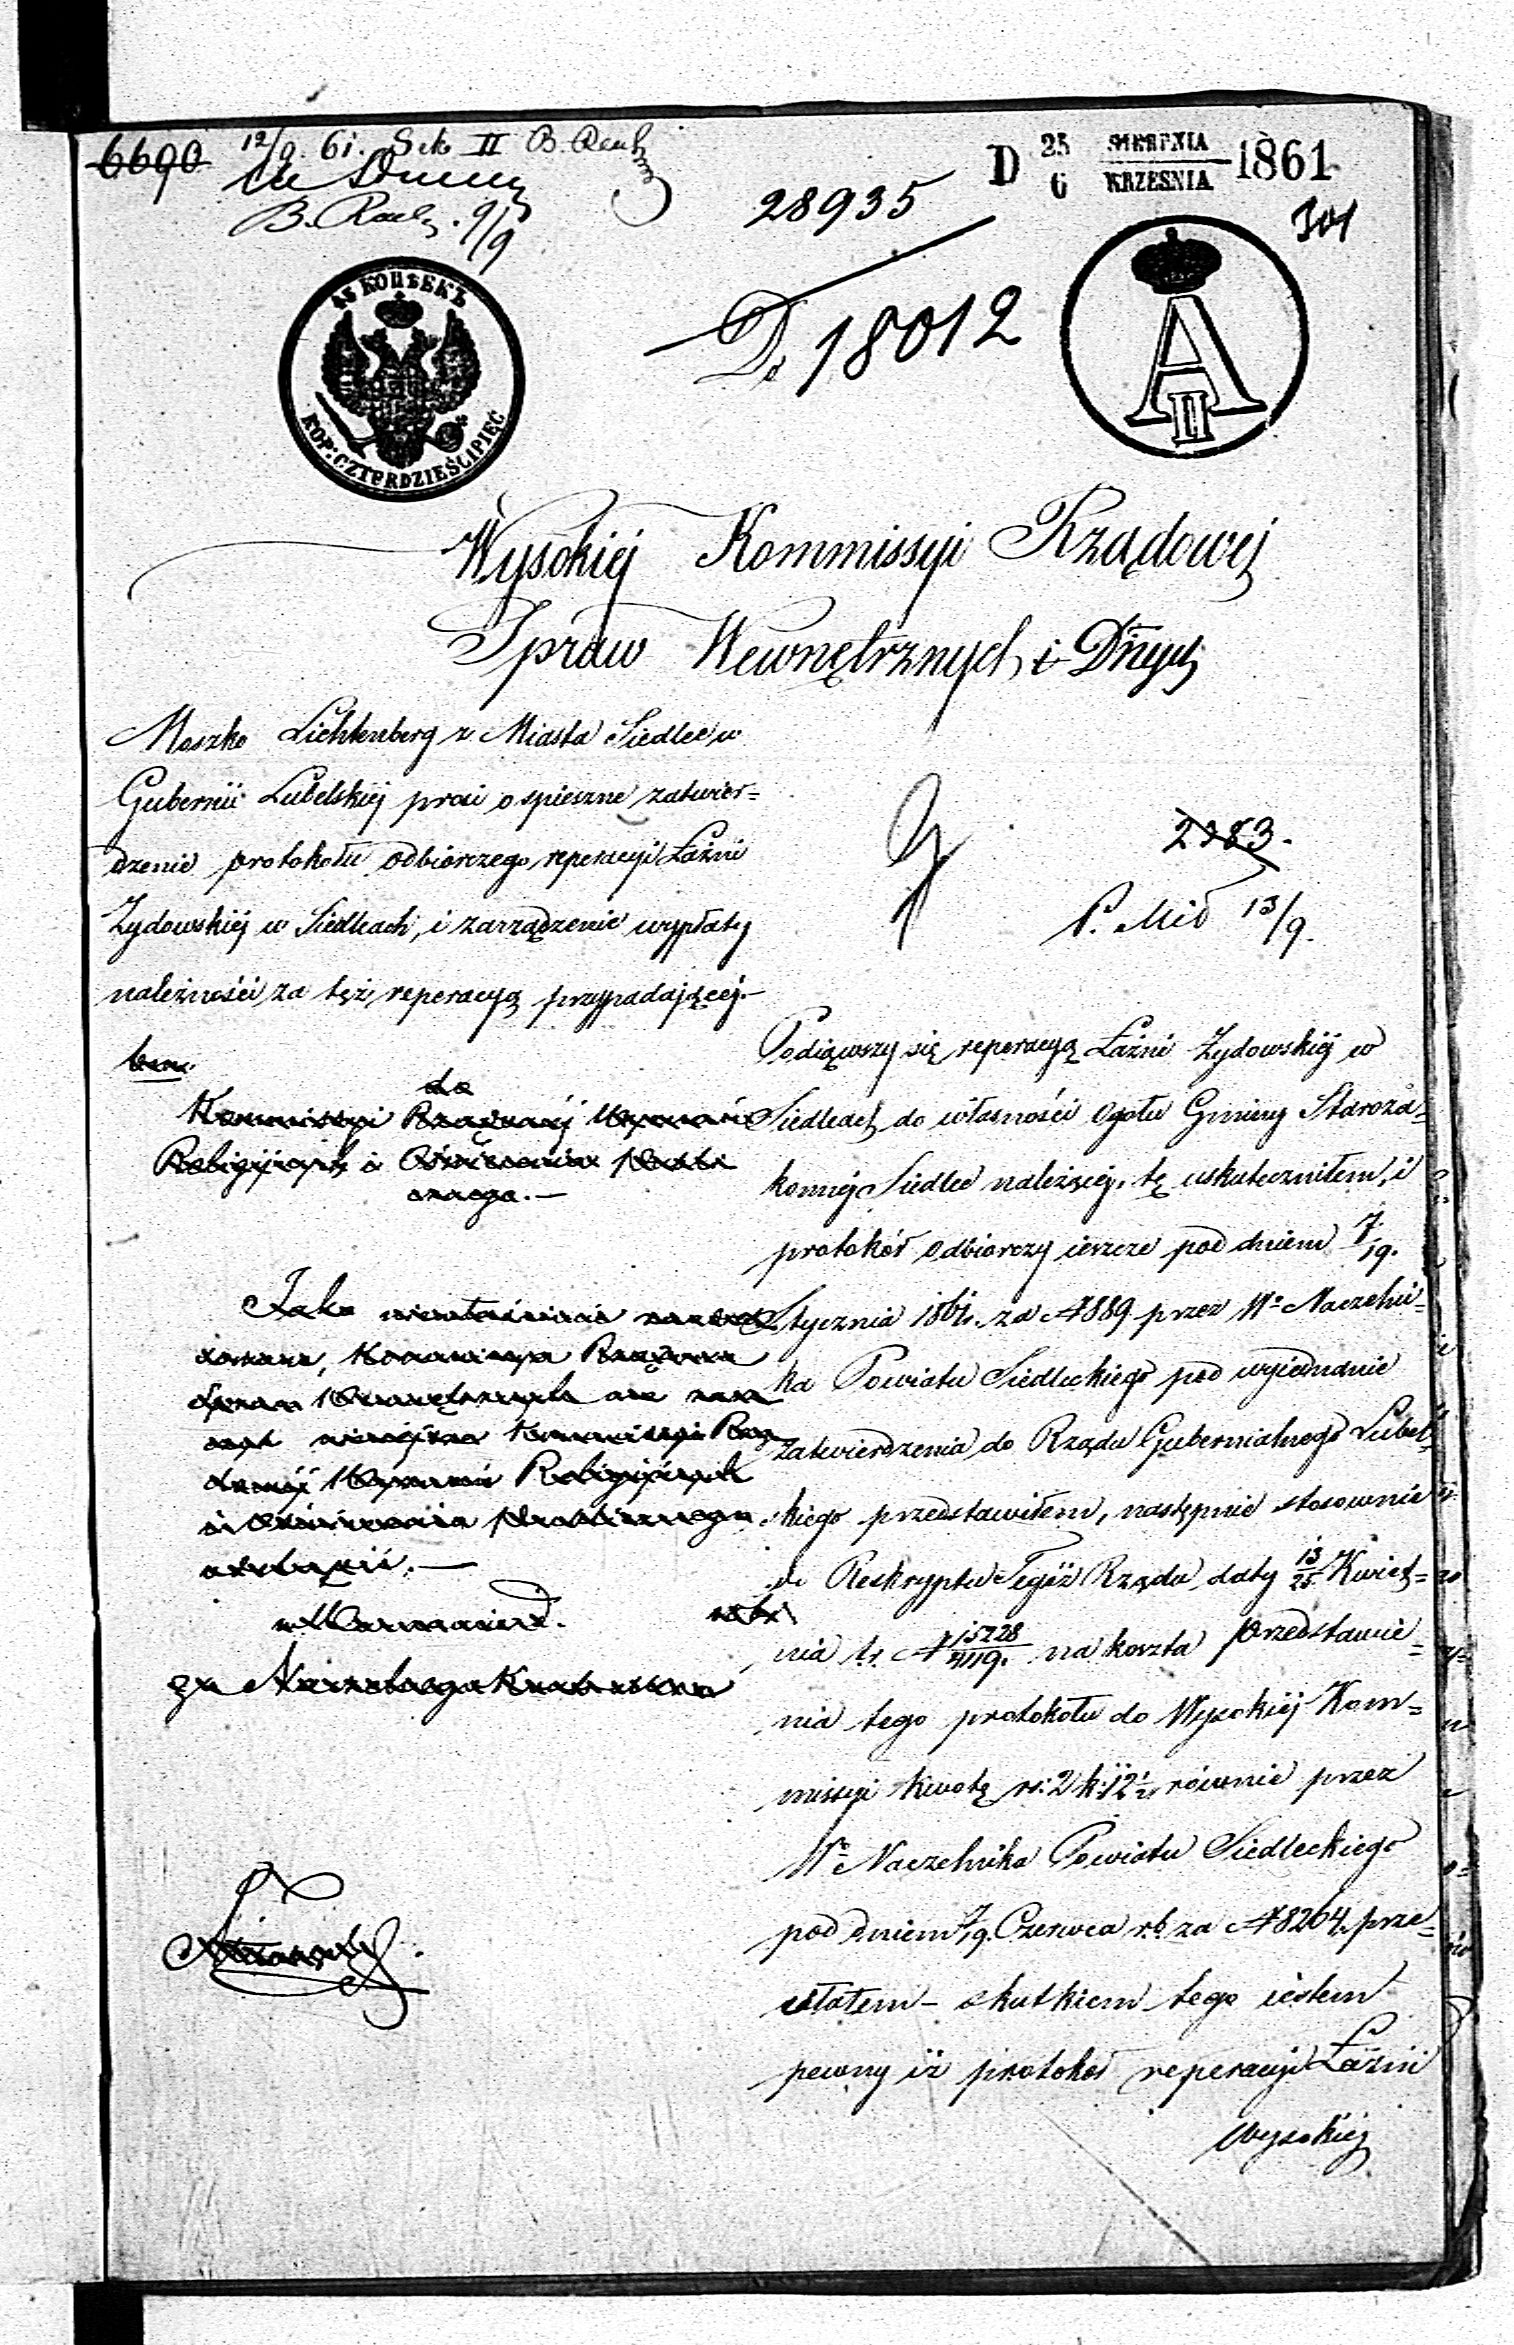 6690
12/9. 61. Sek II B.
B. 9/9
28935
D 25 SIERPNIA 1861
6 WRZEŚNIA
301
45 КОПѢЕКЪ
KOP: CZTERDZIEŚCI PIĘĆ
D 18012
A II
Wysokiej Kommissyi Rządowej
Spraw Wewnętrznych i Dñych
Moszko Lichtenberg z Miasta Siedlec w
Gubernii Lubelskiej prosi o spieszne zatwier=
dzenie protokołu odbiorczego reperacyi Łaźni
Żydowskiej w Siedlcach, i zarządzenie wypłaty
należności za tęż reperacyą przypadającej.—
2983.
13/9.
do
Kommissyi Rządowej Wyznań
Religijnych i Oświecenia Publi
cznego.—
Jako niewłaściwie
Kommissya Rządowa
Spraw Wewnętrznych ma
niniejsze Kommissyi Rzą
dowej Wyznań Religijnych
i Oświecenia Publicznego
w Warszawie d.
Podiąwszy się reperacyą Łaźni Żydowskiej w
Siedlcach do własności ogółu Gminy Staroza=
konnej Siedlec należącej, tę uskuteczniłem, i
protokół odbiorczy ieszcze pod dniem 7/19.
Stycznia 1861 r. za N 889 przez Wo Naczelni=
ka Powiatu Siedleckiego pod wyiednanie
zatwierdzenia do Rządu Gubernialnego Lubel=
skiego przedstawiłem, następnie stosownie
do Reskryptu Tegoż Rządu daty 13/25 Kwiet=
nia t.r. N 15228/4119. na koszta przedstawie=
nia tego protokołu do Wysokiej Kom=
missyi kwotę rs: 2 k: 12½ równie przez
Wo Naczelnika Powiatu Siedleckiego
pod dniem 7/19. Czerwca r.b. za N 8264 prze=
słałem — skutkiem tego iestem
pewny iż protokoł reperacyi Łaźni
Wysokiej